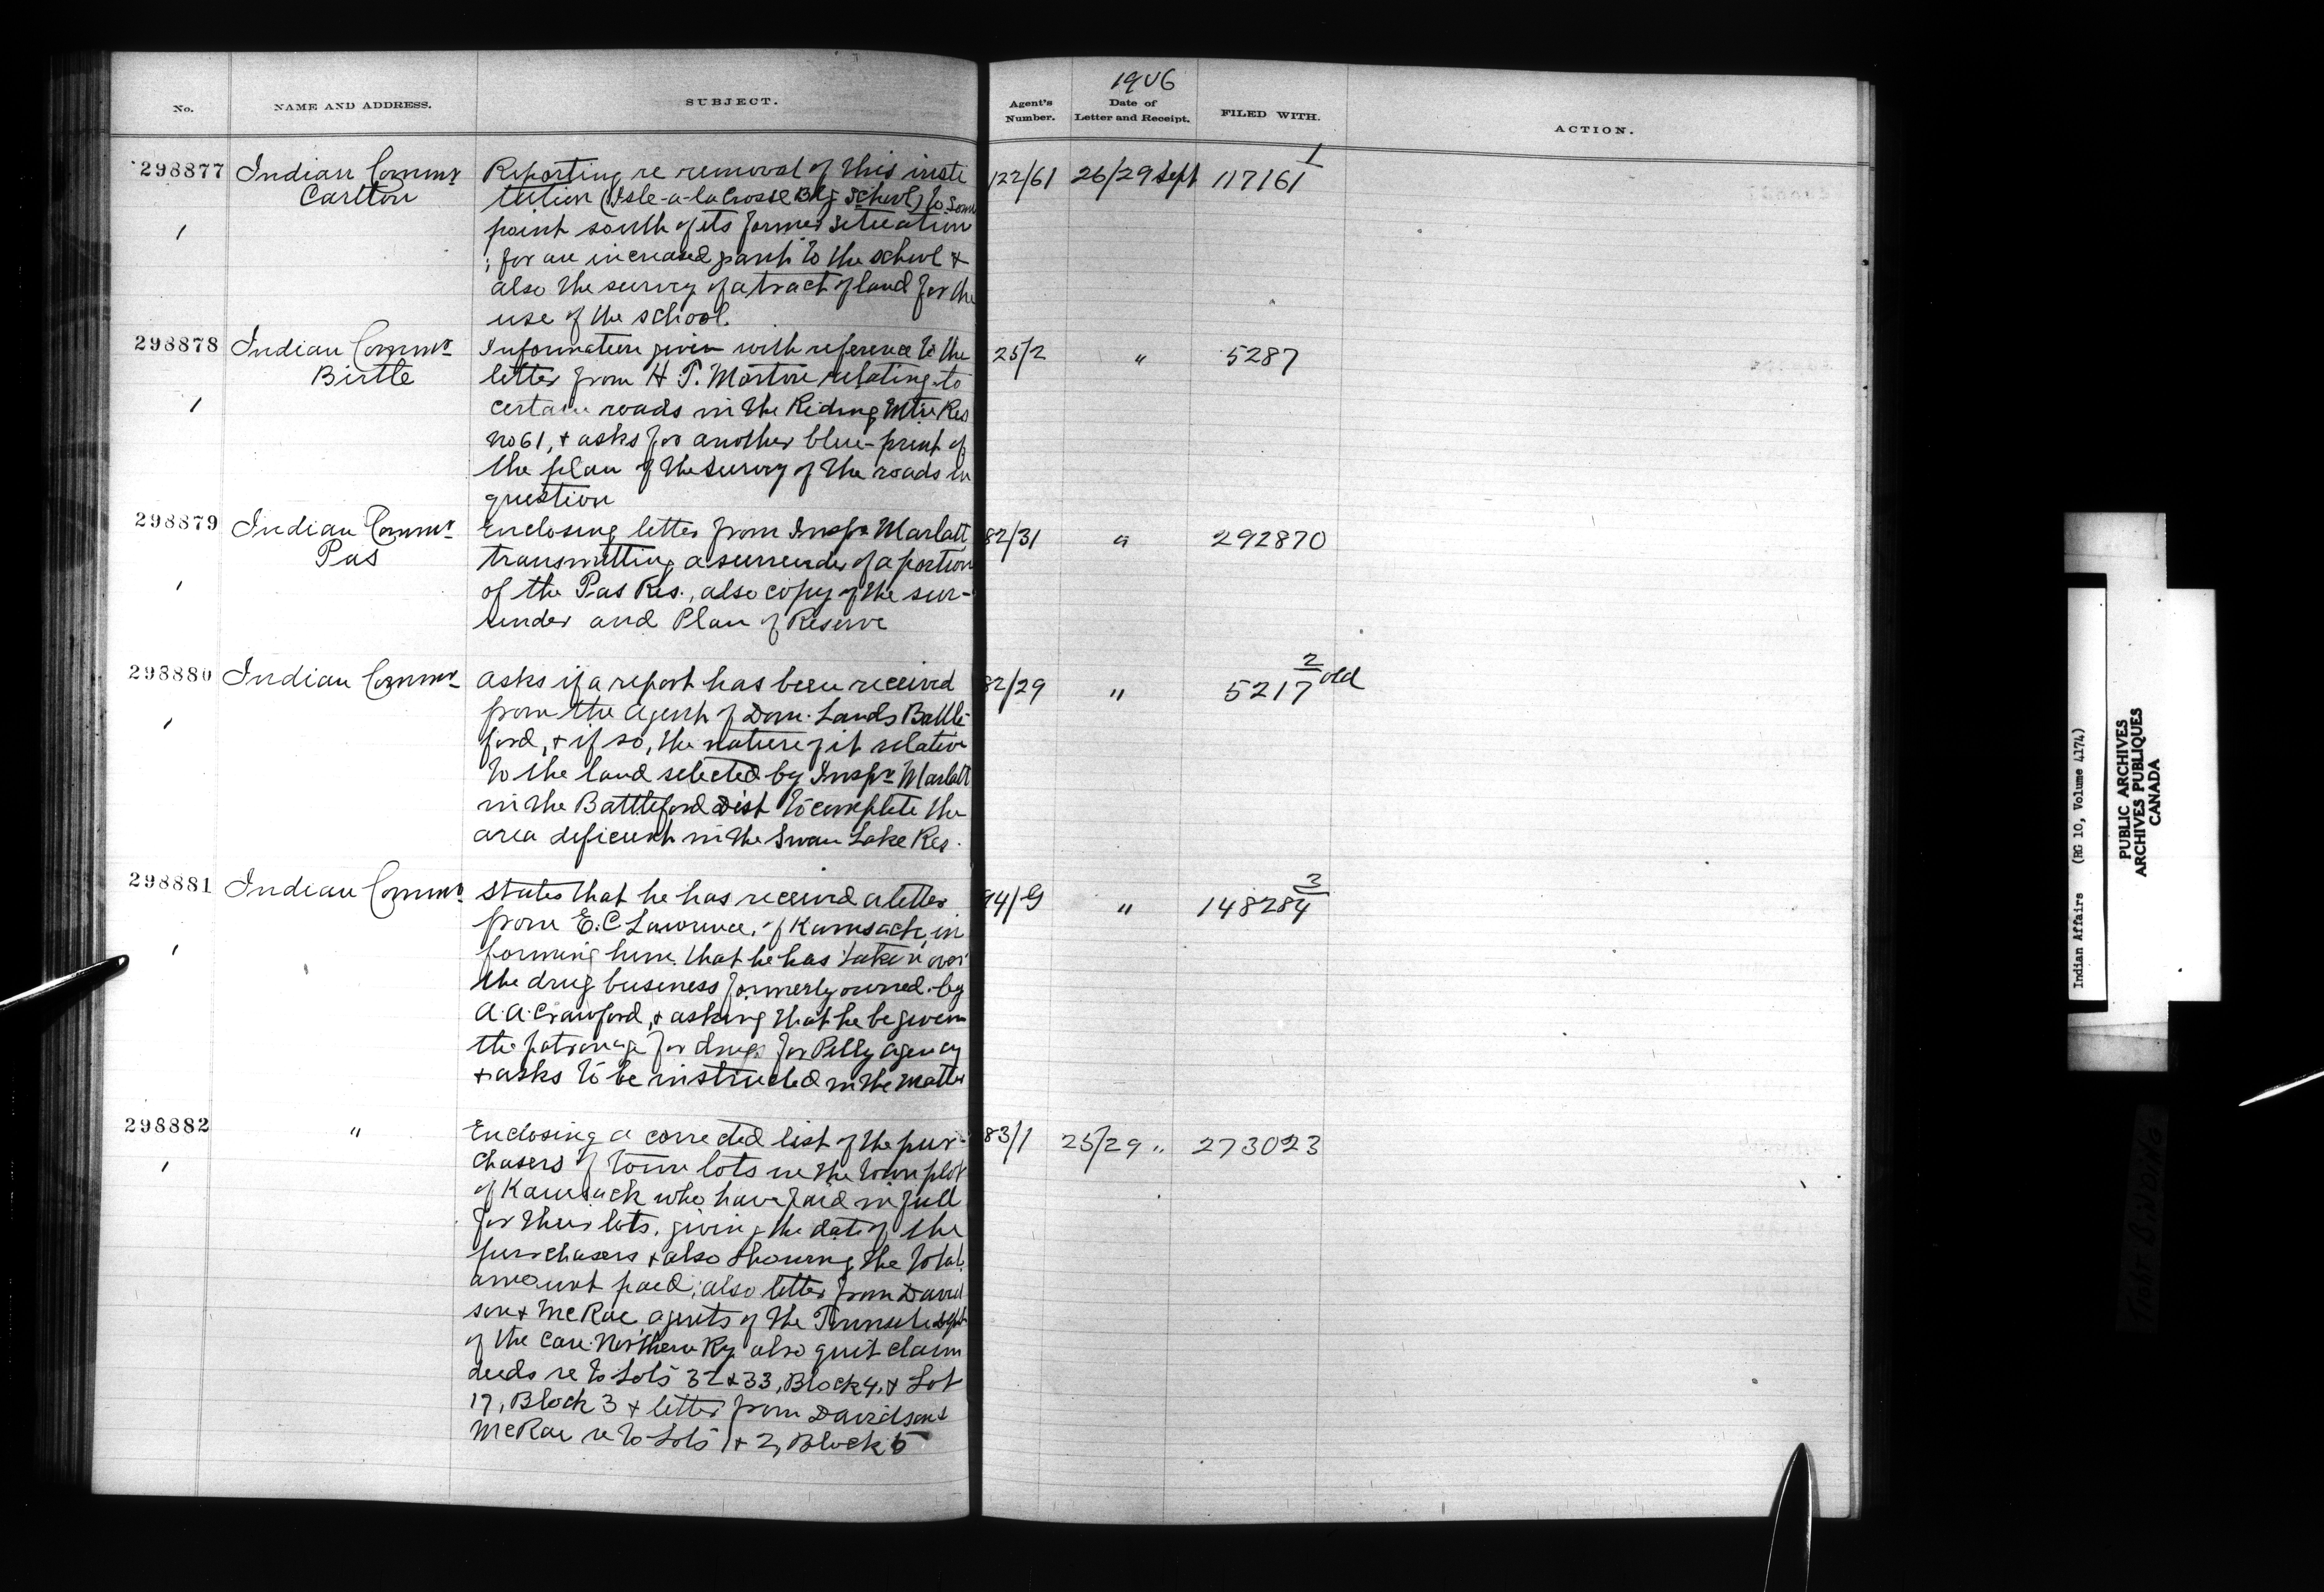 1906
No. NAME AND ADDRESS. SUBJECT. Agent's Number. Date of Letter and Receipt. FILED WITH. ACTION.
298877 Indian Commr Reporting re removal of this insti 122/61 26/29 Sept 117161 1
Carlton tution (Isle-a-la Crosse Bdg School) to some
1 point south of its former situation
; for an increased grant to the school &
also the survey of a tract of land for the
use of the school.
298878 Indian Commr Information given with reference to the 25/2 " 5287
Birtle letter from H. T. Morton relating to
1 certain roads in the Riding Mtn Res
No 61, & asks for another blue-print of
the plan of the survey of the roads in
question
298879 Indian Commr Enclosing letter from Inspr Marlatt 82/31 " 292870
Pas transmitting a surrender of a portion
1 of the Pas Res., also copy of the sur-
render and Plan of Reserve
298880 Indian Commr Asks if a report has been received 82/29 " 5217 2 old
1 from the Agent of Dom. Lands Battle
ford, & if so, the nature of it relative
to the land selected by Inspr Marlatt
in the Battleford Dist to complete the
area deficient in the Swan Lake Res.
298881 Indian Commr States that he has received a letter 94/9 " 148284 3
from E. C. Lawrence, of Kamsack, in
1 forming him that he has taken over
the drug business formerly owned by
A. A. Crawford, & asking that he be given
the patronage for drugs for Pelly Agency
& asks to be instructed in the matter
298882 " Enclosing a corrected list of the pur- 83/1 25/29 " 273023
1 chasers of town lots in the town plot
of Kamsack who have paid in full
for their lots, giving the date of the
purchasers & also showing the total
amount paid; also letter from David
son & McRae agents of the Townsite Dept
of the Can. Northern Ry also quit claim
deeds re to Lots 32 & 33, Block 4, & Lot
17, Block 3 & letter from Davidson &
McRae re to Lots 1 & 2, Block 5
Indian Affairs (RG 10, Volume 4174)
PUBLIC ARCHIVES
ARCHIVES PUBLIQUES
CANADA